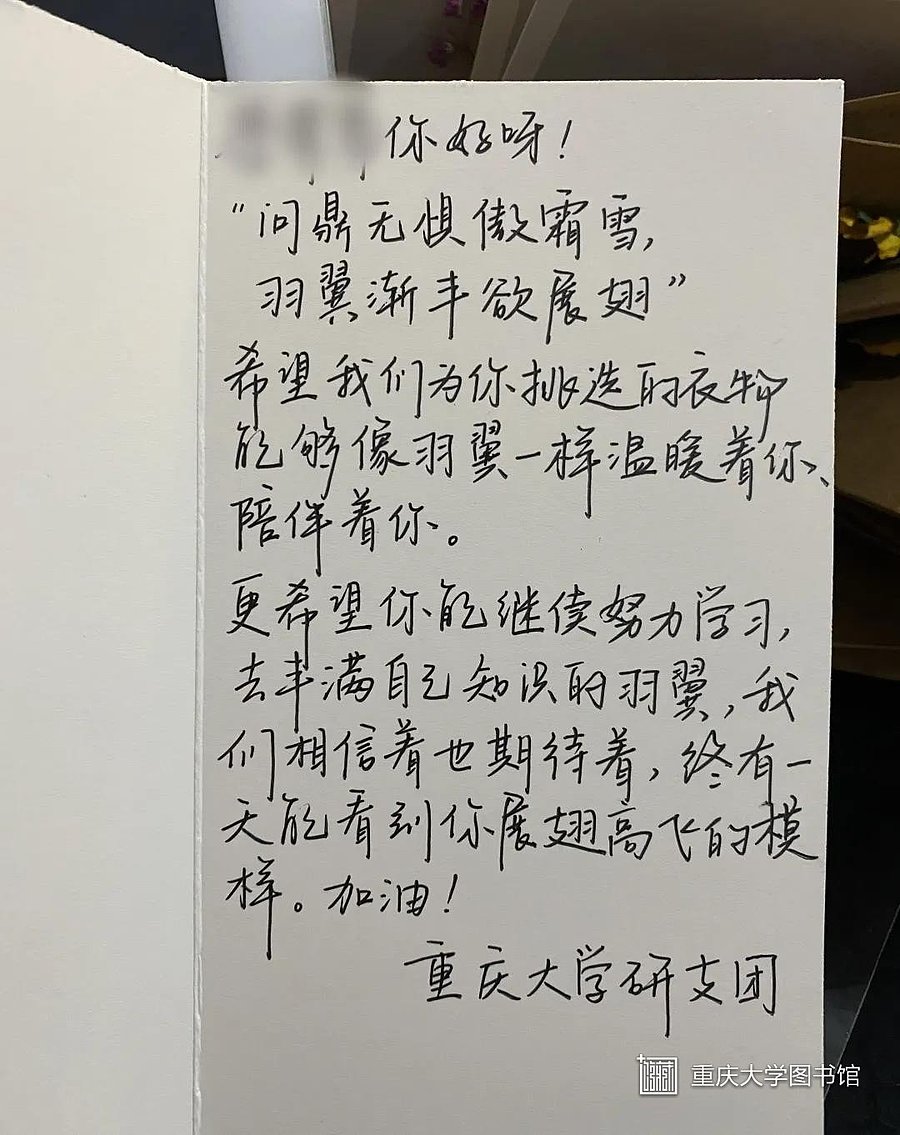 你好呀！
“问鼎无惧傲霜雪，
羽翼渐丰欲展翅”
希望我们为你挑选的衣物
能够像羽翼一样温暖着你、
陪伴着你。
更希望你能继续努力学习，
去丰满自己知识的羽翼，我
们相信着也期待着，终有一
天能看到你展翅高飞的模
样。加油！
重庆大学研支团
重庆大学图书馆